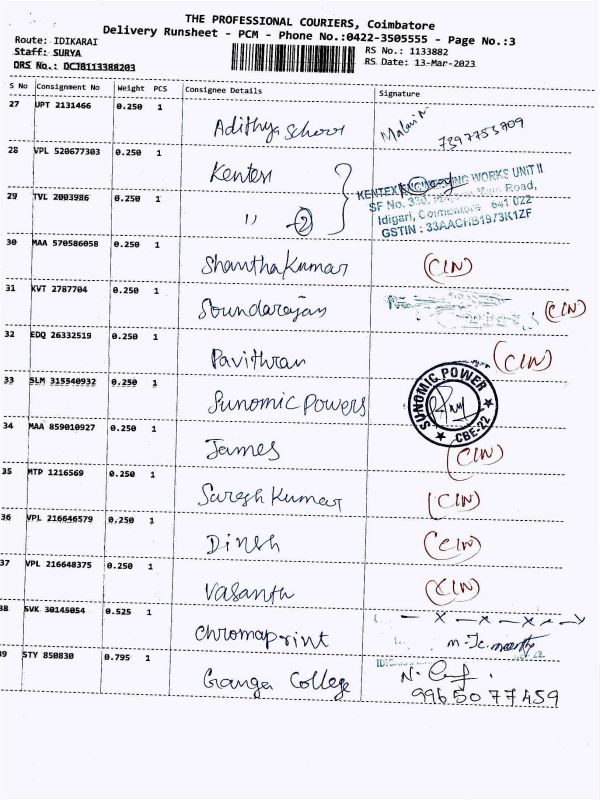 THE PROFESSIONAL COURIERS, Coimbatore
Delivery Runsheet - PCM - Phone No.:0422-3505555 - Page No.:3
Route: IDIKARAI
RS No.: 1133882
Staff: SURYA
RS Date: 13-Mar-2023
DRS No.: DCJB113388203
S No Consignment No Weight PCS Consignee Details Signature
27 UPT 2131466 0.250 1 Adithya School Malavi 7397753709
28 VPL 520677303 0.250 1 Kentex
KENTEX ENGINEERING WORKS UNIT II
SF No. 330, Main Road,
Idigari, Coimbatore 641 022
GSTIN : 33AACHB1973K1ZF
29 TVL 2003986 0.250 1 " 2
30 MAA 570586058 0.250 1 Shanthakumar (CIN)
31 KVT 2787704 0.250 1 Soundarajan (CIN)
32 EDQ 26332519 0.250 1 Pavithran (CIN)
33 SLM 315540932 0.250 1 Sunomic Powers
SUNOMIC POWER
CBE-22
34 MAA 859010927 0.250 1 James (CIN)
35 MTP 1216569 0.250 1 Suresh Kumar (CIN)
36 VPL 216646579 0.250 1 Dinesh (CIN)
37 VPL 216648375 0.250 1 Vasanth (CIN)
38 SVK 30145054 0.525 1 Chromaprint
39 STY 850830 0.795 1 Ganga College 9965077459